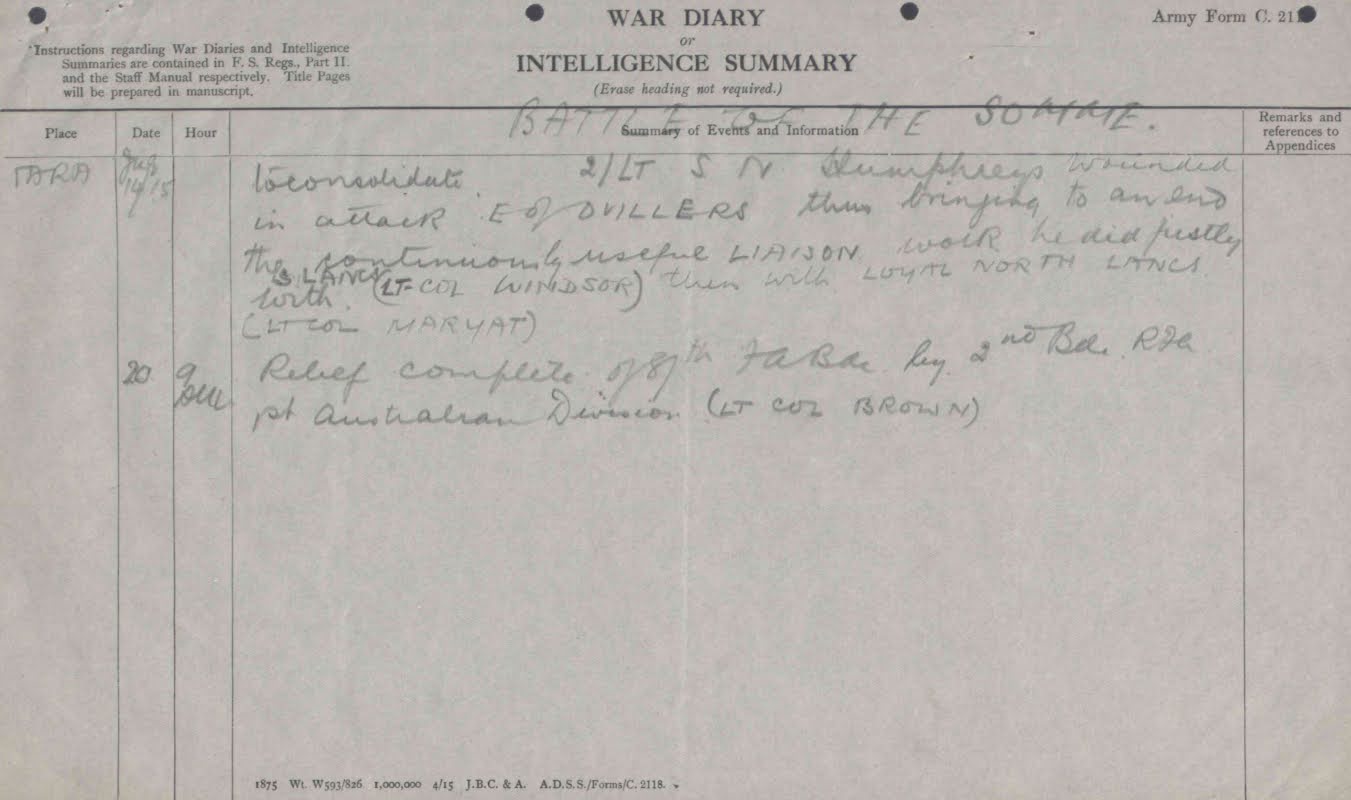 WAR DIARY
or
INTELLIGENCE SUMMARY
(Erase heading not required.)
Army Form C. 211
Instructions regarding War Diaries and Intelligence
Summaries are contained in F. S. Regs., Part II.
and the Staff Manual respectively. Title Pages
will be prepared in manuscript.
BATTLE OF THE SOMME.
Place Date Hour Summary of Events and Information Remarks and references to Appendices
TARA 14/15 to consolidate. 2/LT S N Humphreys wounded
in attack E of OVILLERS thus bringing to an end
the continuously useful LIAISON work he did firstly
with S. LANCS (LT-COL WINDSOR) then with LOYAL NORTH LANCS.
(LT COL MARYAT)
20 9 Relief complete of 87th FA Bde by 2nd Bde RFA
1st Australian Division (LT COL BROWN)
1875 Wt. W593/826 1,000,000 4/15 J.B.C. & A. A.D.S.S./Forms/C. 2118.